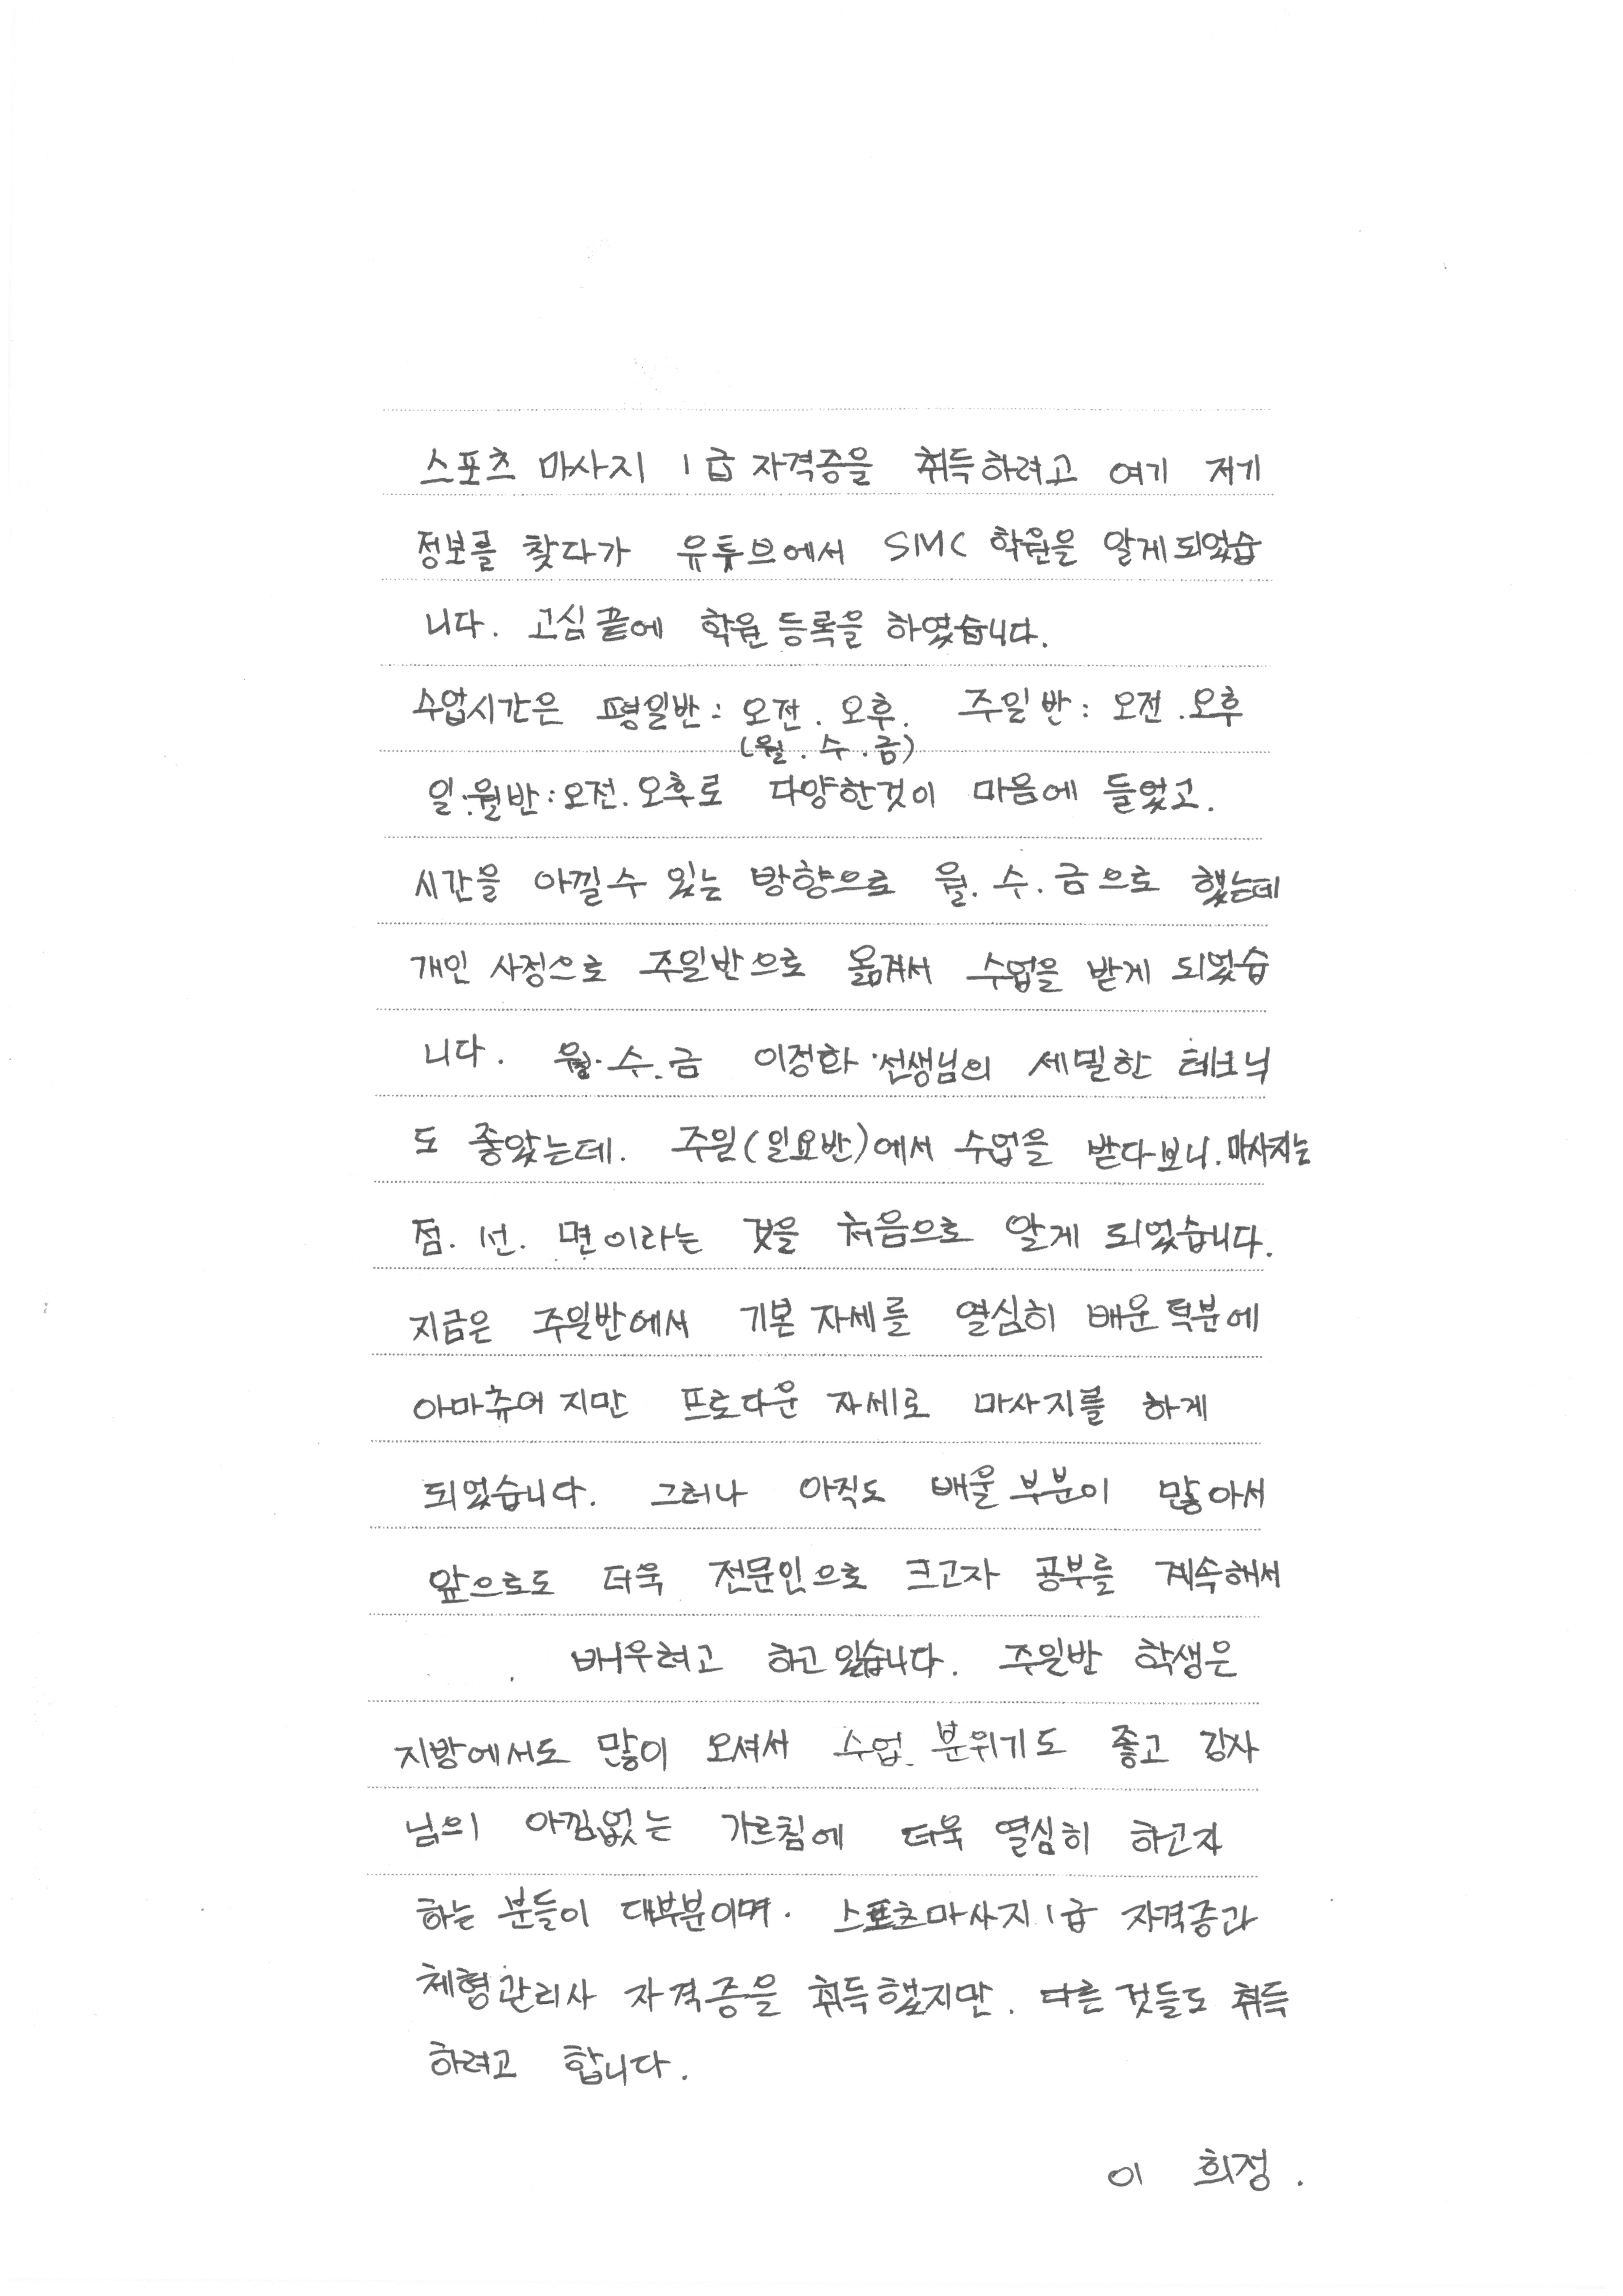 스포츠 마사지 1급 자격증을 취득하려고 여기 저기
정보를 찾다가 유튜브에서 SMC 학원을 알게되었습
니다. 고심끝에 학원 등록을 하였습니다.
수업시간은 평일반: 오전. 오후. 주일반: 오전.오후
(월.수.금)
일.월반:오전.오후로 다양한것이 마음에 들었고.
시간을 아낄수 있는 방향으로 월.수.금으로 했는데
개인 사정으로 주일반으로 옮겨서 수업을 받게 되었습
니다. 월.수.금 이정화 선생님의 세밀한 테크닉
도 좋았는데. 주일(일요반)에서 수업을 받다보니.마사지는
점. 선. 면이라는 것을 처음으로 알게 되었습니다.
지금은 주일반에서 기본자세를 열심히 배운덕분에
아마츄어지만 프로다운 자세로 마사지를 하게
되었습니다. 그러나 아직도 배울부분이 많아서
앞으로도 더욱 전문인으로 크고자 공부를 계속해서
배우려고 하고있습니다. 주일반 학생은
지방에서도 많이 오셔서 수업 분위기도 좋고 강사
님의 아낌없는 가르침에 더욱 열심히 하고자
하는 분들이 대부분이며. 스포츠마사지1급 자격증과
체형관리사 자격증을 취득했지만. 다른 것들도 취득
하려고 합니다.
이 희정.